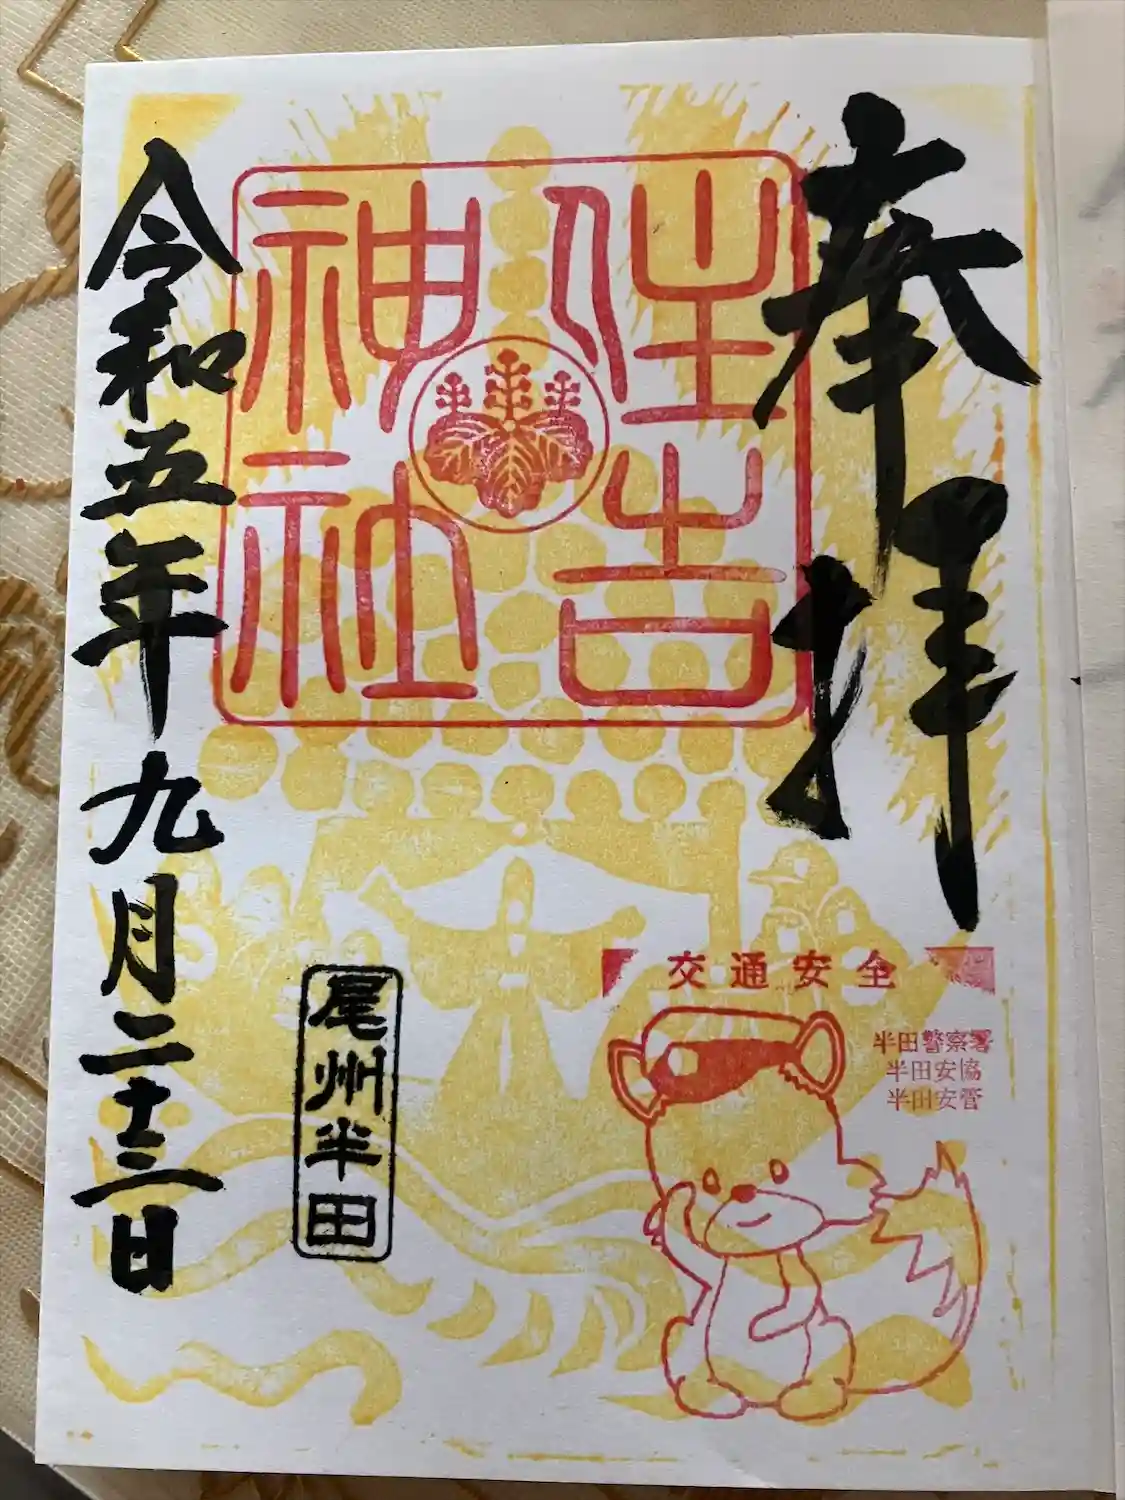 奉拝
住吉
神社
令和五年九月二十三日
尾州半田
交通安全
半田警察署
半田安協
半田安管